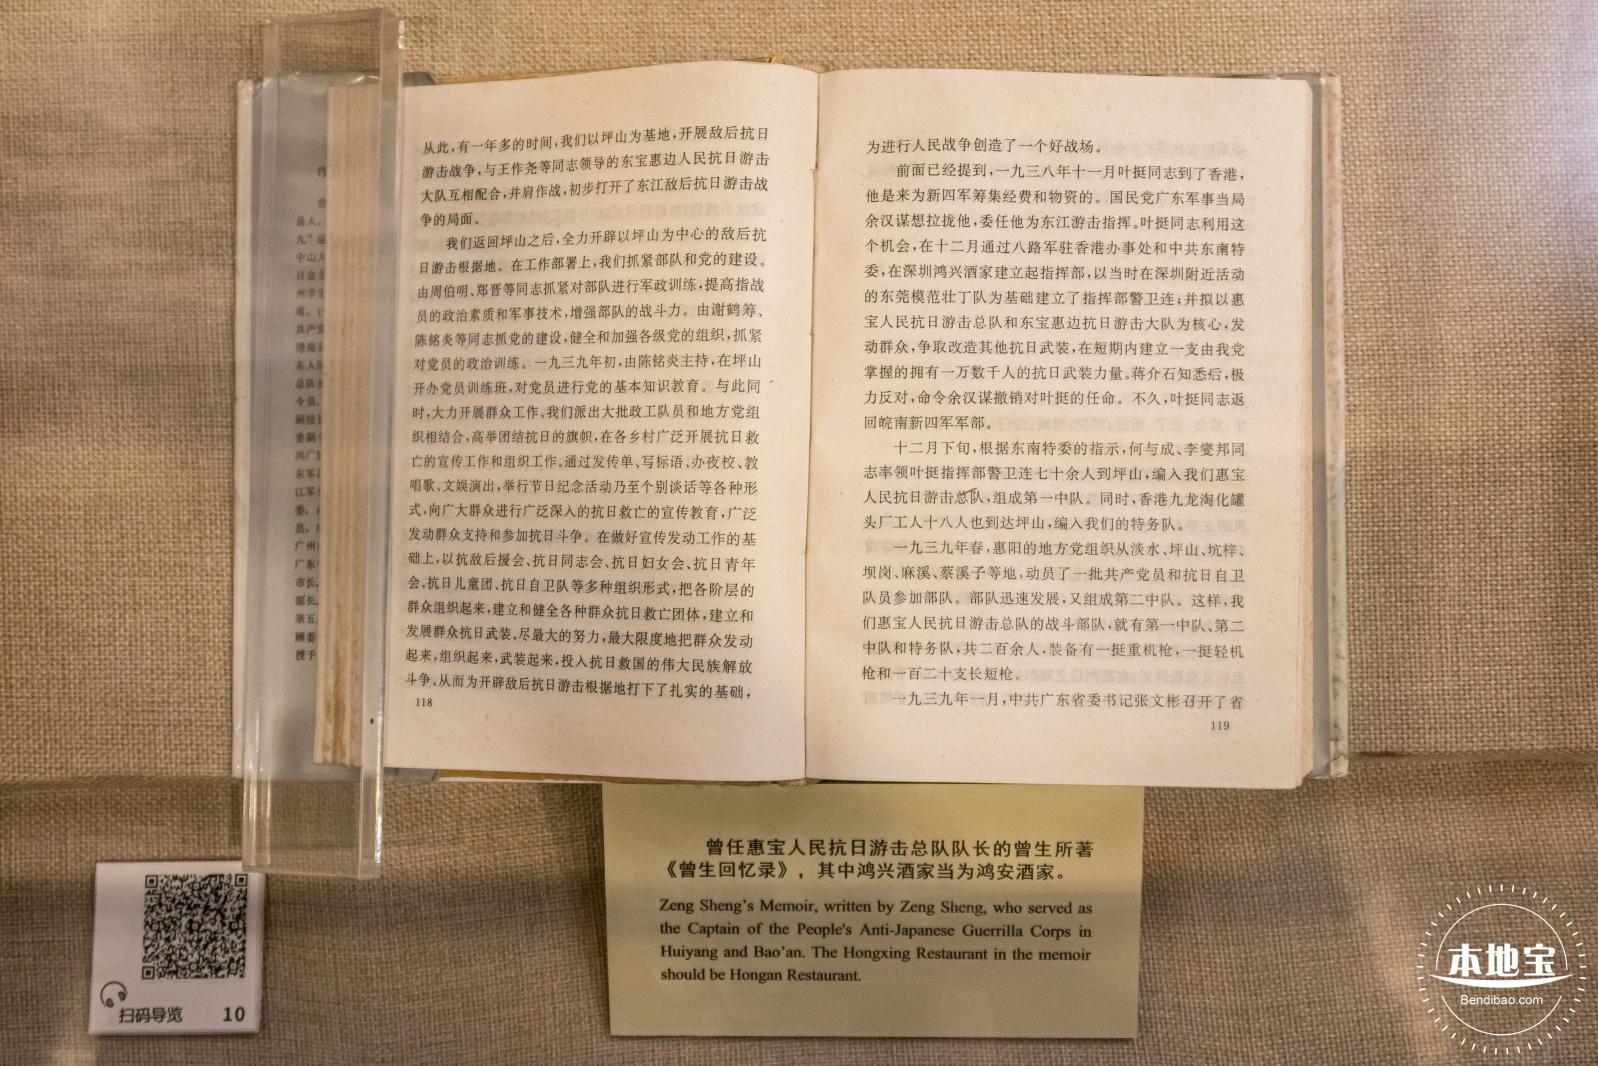 从此,有一年多的时间,我们以坪山为基地,开展敌后抗日
游击战争,与王作尧等同志领导的东宝惠边人民抗日游击
大队互相配合,并肩作战,初步打开了东江敌后抗日游击战
争的局面。
我们返回坪山之后,全力开辟以坪山为中心的敌后抗
日游击根据地。在工作部署上,我们抓紧部队和党的建设。
由周伯明、郑晋等同志抓紧对部队进行军政训练,提高指战
员的政治素质和军事技术,增强部队的战斗力。由谢鹤筹、
陈铭炎等同志抓党的建设,健全和加强各级党的组织,抓紧
对党员的政治训练。一九三九年初,由陈铭炎主持,在坪山
开办党员训练班,对党员进行党的基本知识教育。与此同
时,大力开展群众工作。我们派出大批政工队员和地方党组
织相结合,高举团结抗日的旗帜,在各乡村广泛开展抗日救
亡的宣传工作和组织工作。通过发传单、写标语、办夜校、教
唱歌、文娱演出,举行节日纪念活动乃至个别谈话等各种形
式,向广大群众进行广泛深入的抗日救亡的宣传教育,广泛
发动群众支持和参加抗日斗争。在做好宣传发动工作的基
础上,以抗敌后援会、抗日同志会、抗日妇女会、抗日青年
会、抗日儿童团、抗日自卫队等多种组织形式,把各阶层的
群众组织起来,建立和健全各种群众抗日救亡团体,建立和
发展群众抗日武装。尽最大的努力,最大限度地把群众发动
起来,组织起来,武装起来,投入抗日救国的伟大民族解放
斗争。从而为开辟敌后抗日游击根据地打下了扎实的基础,
118
为进行人民战争创造了一个好战场。
前面已经提到,一九三八年十一月叶挺同志到了香港,
他是来为新四军筹集经费和物资的。国民党广东军事当局
余汉谋想拉拢他,委任他为东江游击指挥。叶挺同志利用这
个机会,在十二月通过八路军驻香港办事处和中共东南特
委,在深圳鸿兴酒家建立起指挥部,以当时在深圳附近活动
的东莞模范壮丁队为基础建立了指挥部警卫连;并拟以惠
宝人民抗日游击总队和东宝惠边抗日游击大队为核心,发
动群众,争取改造其他抗日武装,在短期内建立一支由我党
掌握的拥有一万数千人的抗日武装力量。蒋介石知悉后,极
力反对,命令余汉谋撤销对叶挺的任命。不久,叶挺同志返
回皖南新四军军部。
十二月下旬,根据东南特委的指示,何与成、李燮邦同
志率领叶挺指挥部警卫连七十余人到坪山,编入我们惠宝
人民抗日游击总队,组成第一中队。同时,香港九龙淘化罐
头厂工人十八人也到达坪山,编入我们的特务队。
一九三九年春,惠阳的地方党组织从淡水、坪山、坑梓、
坝岗、麻溪、蔡溪子等地,动员了一批共产党员和抗日自卫
队员参加部队。部队迅速发展,又组成第二中队。这样,我
们惠宝人民抗日游击总队的战斗部队,就有第一中队、第二
中队和特务队,共二百余人,装备有一挺重机枪,一挺轻机
枪和一百二十支长短枪。
一九三九年一月,中共广东省委书记张文彬召开了省
119
曾任惠宝人民抗日游击总队队长的曾生所著
《曾生回忆录》，其中鸿兴酒家当为鸿安酒家。
Zeng Sheng's Memoir, written by Zeng Sheng, who served as
the Captain of the People's Anti-Japanese Guerrilla Corps in
Huiyang and Bao'an. The Hongxing Restaurant in the memoir
should be Hongan Restaurant.
扫码导览 10
本地宝
Bendibao.com